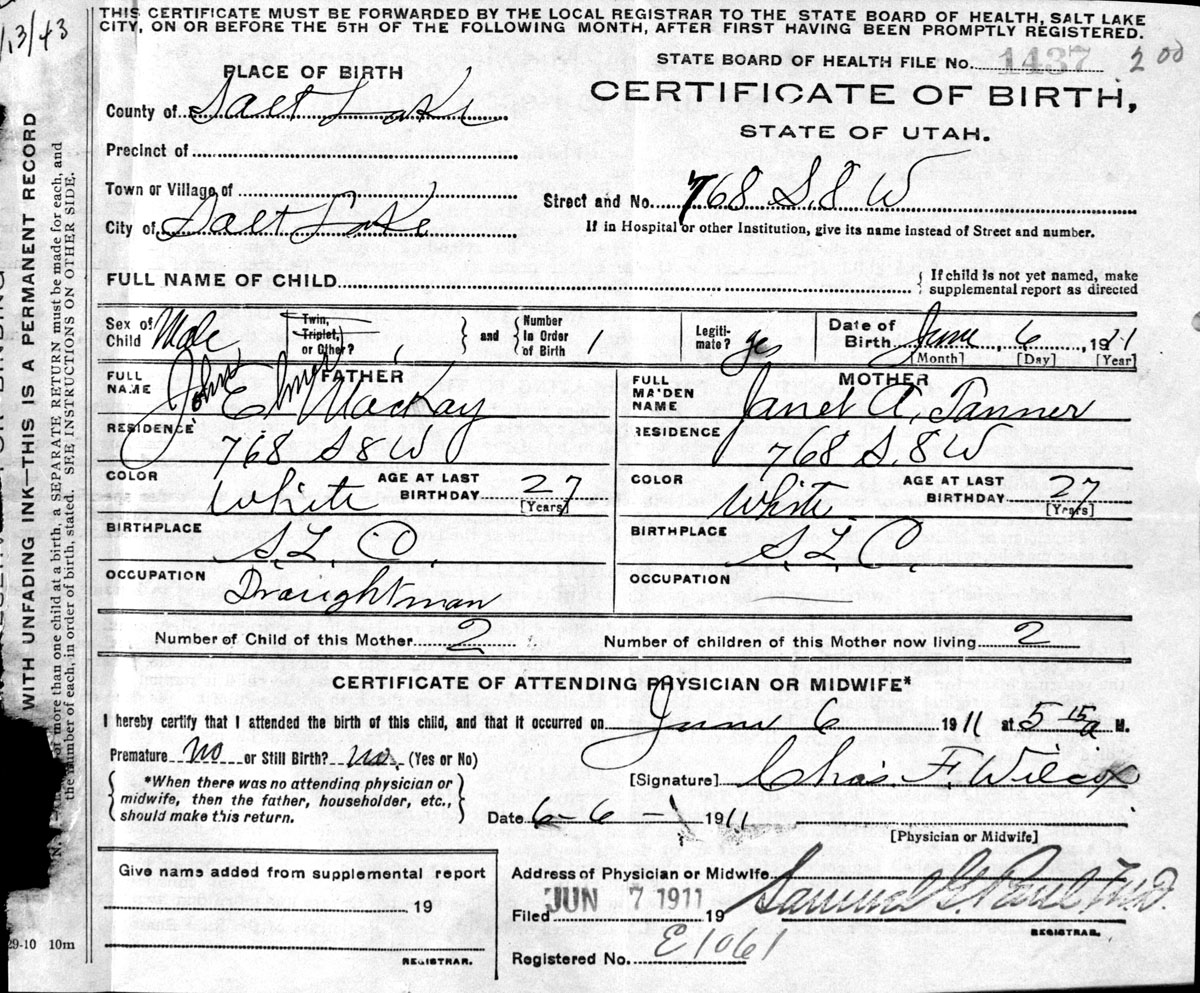 THIS CERTIFICATE MUST BE FORWARDED BY THE LOCAL REGISTRAR TO THE STATE BOARD OF HEALTH, SALT LAKE
CITY, ON OR BEFORE THE 5TH OF THE FOLLOWING MONTH, AFTER FIRST HAVING BEEN PROMPTLY REGISTERED.
/13/43
STATE BOARD OF HEALTH FILE No. 1437 200
PLACE OF BIRTH
CERTIFICATE OF BIRTH,
County of Salt Lake
STATE OF UTAH.
Precinct of
Town or Village of
Street and No. 768 S. 8 W
City of Salt Lake
If in Hospital or other Institution, give its name instead of Street and number.
FULL NAME OF CHILD
{ If child is not yet named, make
supplemental report as directed
Sex of Child Male
Twin, Triplet, or Other? } and { Number In Order of Birth 1
Legiti-mate? yes
Date of Birth June 6, 1911
[Month] [Day] [Year]
FATHER
FULL NAME John E MacKay
MOTHER
FULL MAIDEN NAME Janet A. Tanner
RESIDENCE 768 S 8 W
RESIDENCE 768 S. 8 W
COLOR White AGE AT LAST BIRTHDAY 27 [Years]
COLOR White AGE AT LAST BIRTHDAY 27 [Years]
BIRTHPLACE S. L. C.
BIRTHPLACE S. L. C.
OCCUPATION Draughtman
OCCUPATION
Number of Child of this Mother 2 Number of children of this Mother now living 2
CERTIFICATE OF ATTENDING PHYSICIAN OR MIDWIFE*
I hereby certify that I attended the birth of this child, and that it occurred on June 6 1911 at 5 15 a M.
Premature no or Still Birth? no. (Yes or No)
[Signature] Chas. F. Wilcox
{ *When there was no attending physician or
midwife, then the father, householder, etc.,
should make this return. }
Date 6-6-1911
[Physician or Midwife]
Give name added from supplemental report
19
REGISTRAR.
Address of Physician or Midwife
Filed JUN 7 1911 19 Samuel G. Paul M.D.
REGISTRAR.
Registered No. E1061
29-10 10m
WITH UNFADING INK—THIS IS A PERMANENT RECORD
more than one child at a birth, a SEPARATE RETURN must be made for each, and
the number of each, in order of birth, stated. SEE INSTRUCTIONS ON OTHER SIDE.